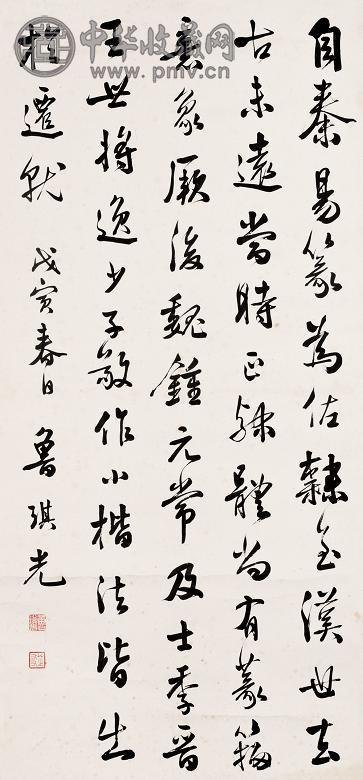 中华收藏网
www.pmv.cn
自秦易篆為佐隸至漢世去
古未遠當時正隸體尚有篆籀
意象厥後魏鍾元常及士季晋
王世將逸少子敬作小楷法皆出
於遷就 戊寅春日 魯琪光